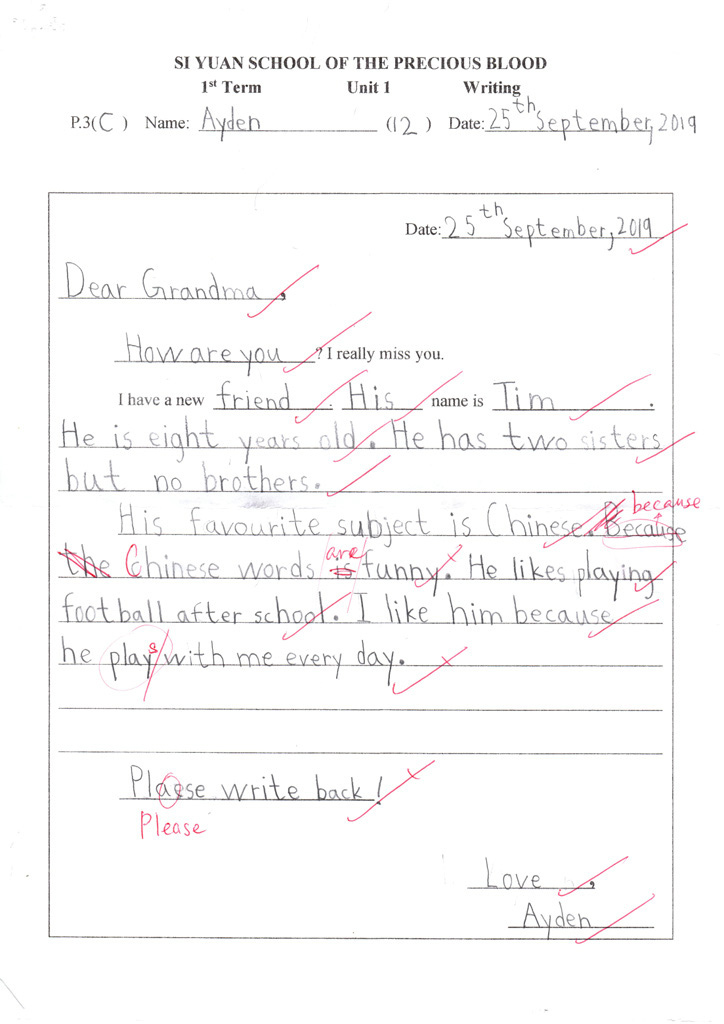 SI YUAN SCHOOL OF THE PRECIOUS BLOOD
1st Term Unit 1 Writing
P.3(C) Name: Ayden (12) Date: 25th September, 2019
Date: 25th September, 2019
Dear Grandma,
How are you? I really miss you.
I have a new friend. His name is Tim.
He is eight years old. He has two sisters
but no brothers.
because
His favourite subject is Chinese. Because
are
the Chinese words is funny. He likes playing
football after school. I like him because
he plays with me every day.
Plaese write back!
Please
Love,
Ayden